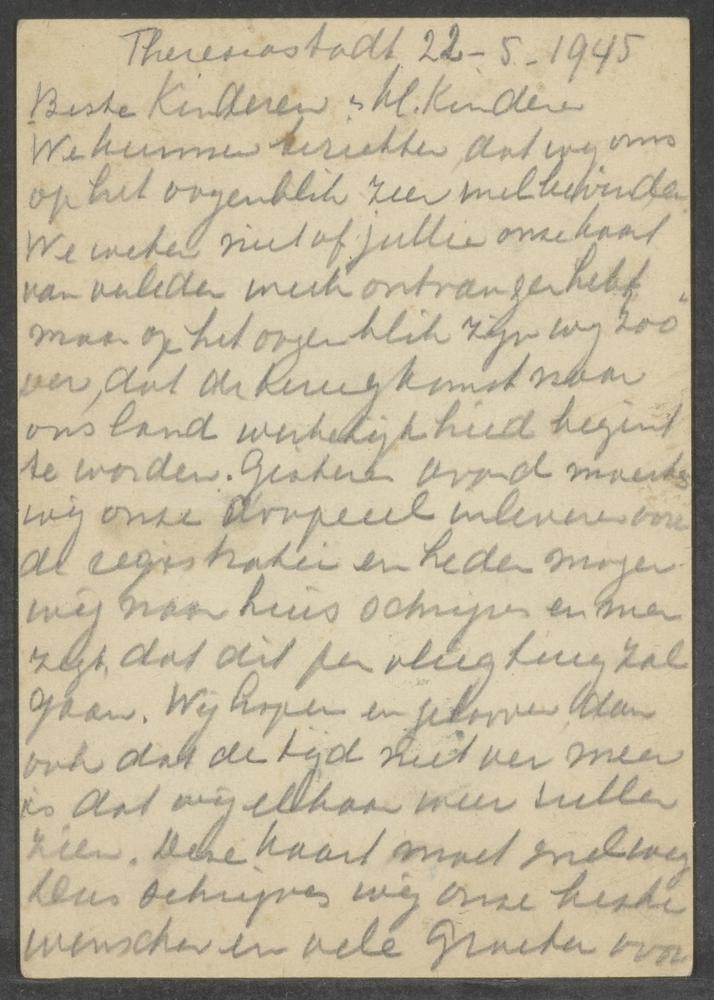 Theresiastadt 22-5-1945
Beste Kinderen, Kl. Kinderen
We kunnen berichten, dat wij ons
op het oogenblik zeer wel bevinden
We weten niet of jullie onze kaart
van verleden week ontvangen hebt
maar op het oogenblik zijn wij zoo
ver, dat de terugkomst naar
ons land werkelijkheid begint
te worden. Gisteren avond moesten
wij onze inleveren voor
de registratie en heden mogen
wij naar huis schrijven en men
zegt, dat dit per vliegtuig zal
gaan. Wij hopen en gelooven dan
ook dat de tijd niet ver meer
is dat wij elkaar weer zullen
zien. Deze kaart moet snel weg
Dus schrijven wij onze beste
wenschen en vele groeten voor